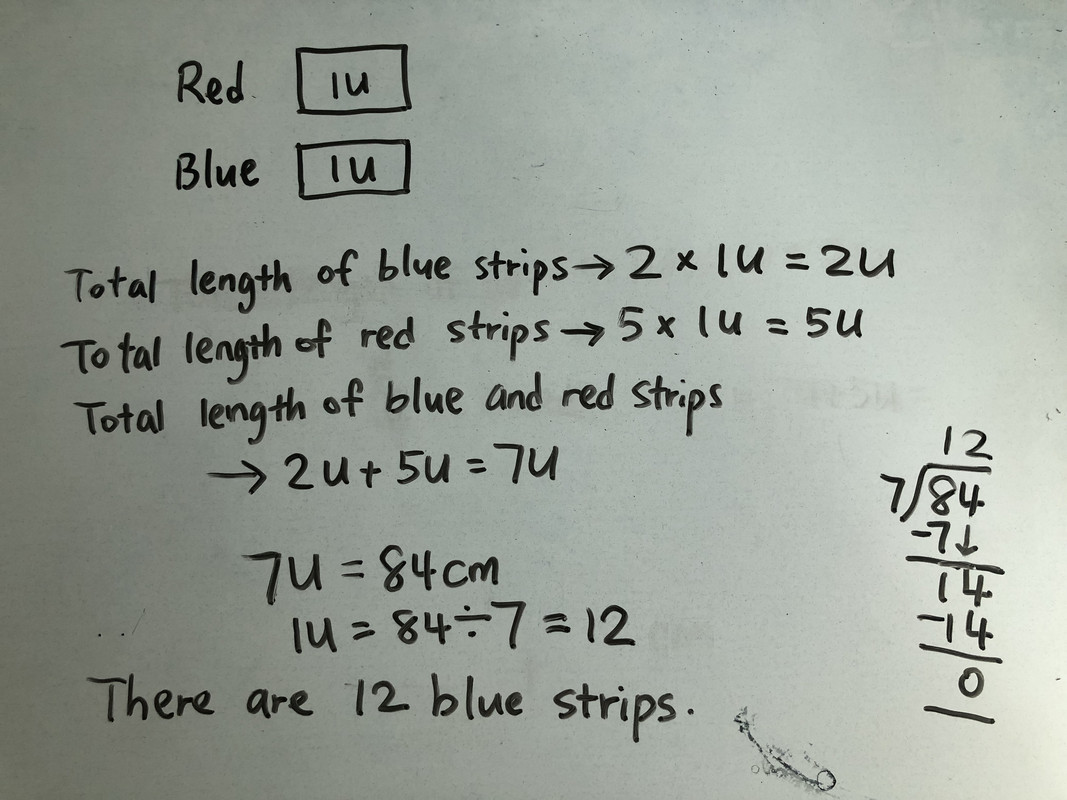 Red 1u
Blue 1u
Total length of blue strips → 2 × 1u = 2u
Total length of red strips → 5 × 1u = 5u
Total length of blue and red strips
→ 2u + 5u = 7u
7u = 84cm
1u = 84 ÷ 7 = 12
There are 12 blue strips.
12
7)84
-7↓
14
-14
0